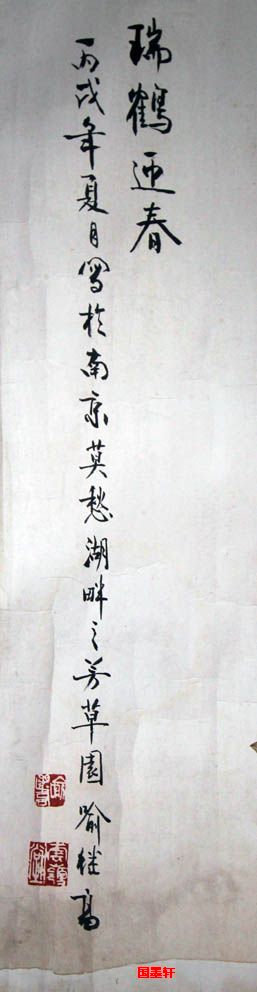 瑞鶴迎春
丙戌年夏月写於南京莫愁湖畔之芳草園喻继高
国墨轩